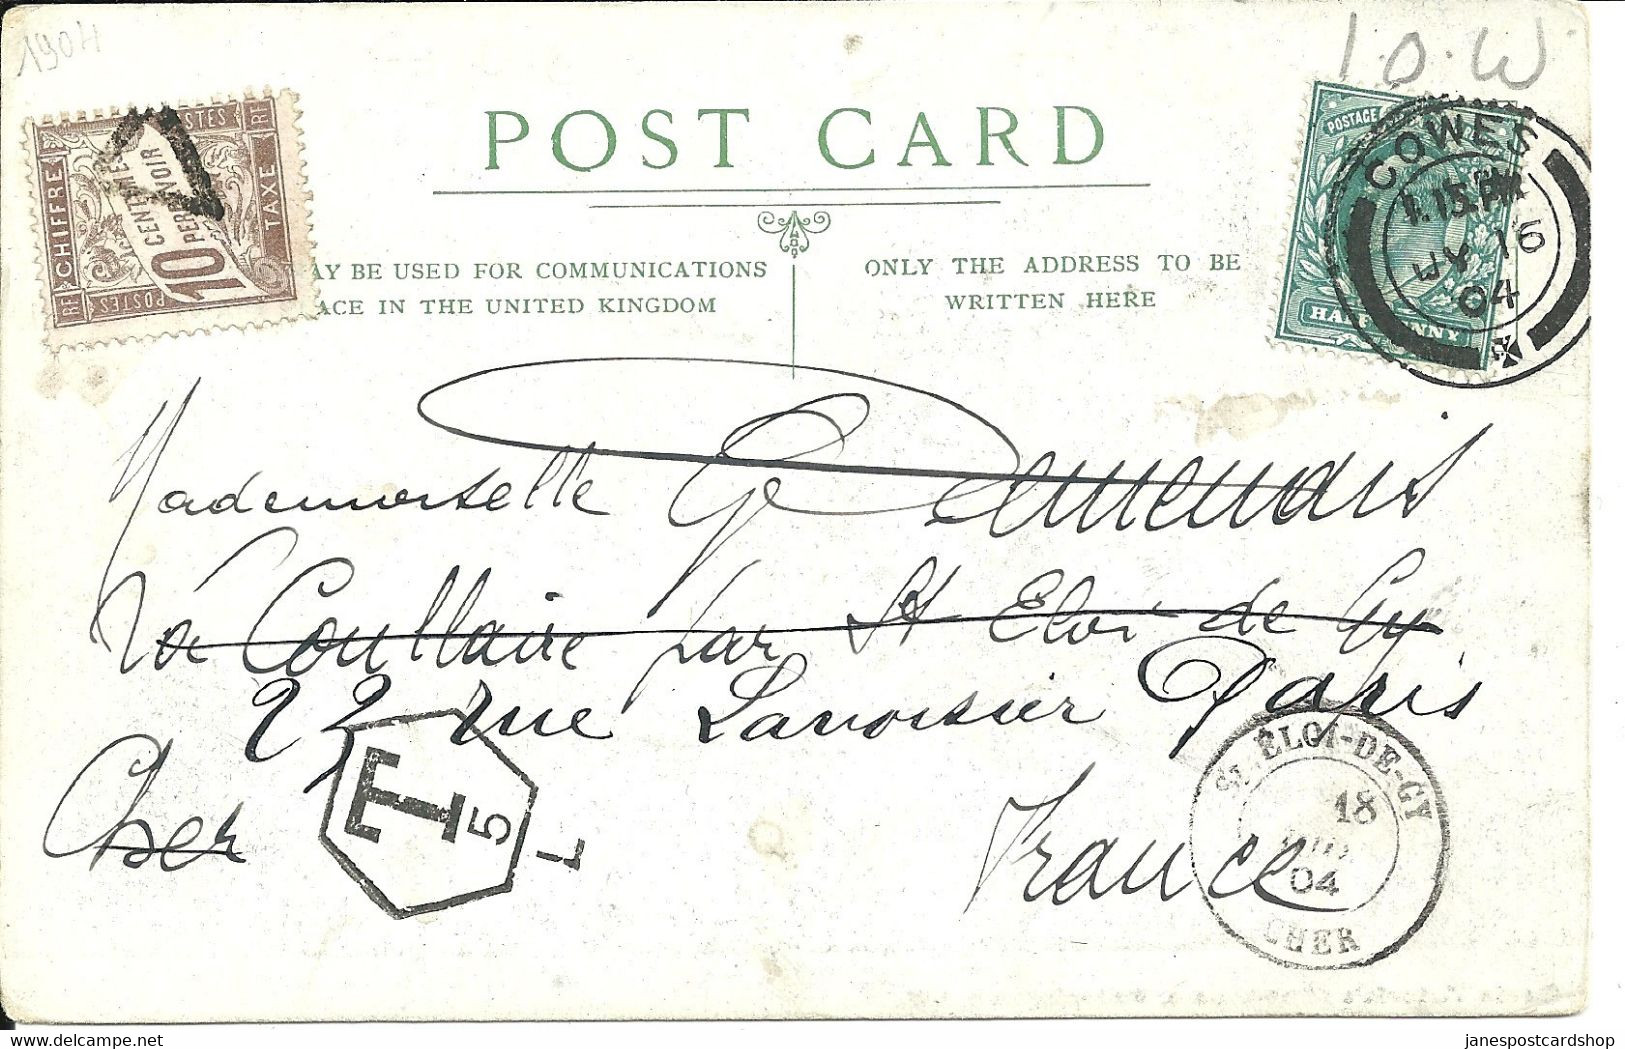 1904
I.O.W.
POST CARD
AY BE USED FOR COMMUNICATIONS
ACE IN THE UNITED KINGDOM
ONLY THE ADDRESS TO BE
WRITTEN HERE
CHIFFRE
TAXE
RF
RF
POSTES
10
CENTIMES
POSTAGE
HALF PENNY
COWES
1.15 PM
MY 16
04
Mademoiselle
par St Eloi de Gy
22 rue Lavoisier Paris
Cher
France
T
5
L
ST ÉLOI-DE-GY
18
04
CHER
janespostcardshop